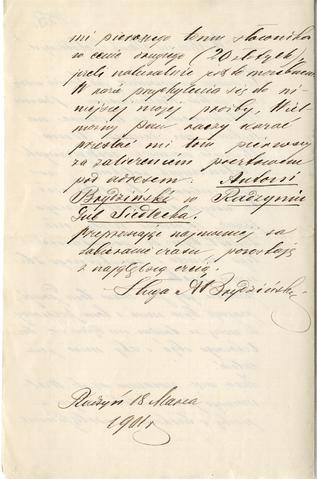 mi pierwszego tomu słownika
w cenie drugiej (20 złotych),
jeśli naturalnie jest to możebnem.
W razie przychylenia się do ni-
niejszej mojej prośby, Wiel-
możny Pan raczy kazać
przesłać mi tom pierwszy
za zaliczeniem pocztowem
pod adresem: Antoni
Brydziński w Radzyniu
Gub. Siedlecka.
Przepraszając najmocniej za
zabieranie czasu pozostaję
z najgłębszą czcią.
Sługa A Brydziński
Radzyń 18 Marca
1901 r